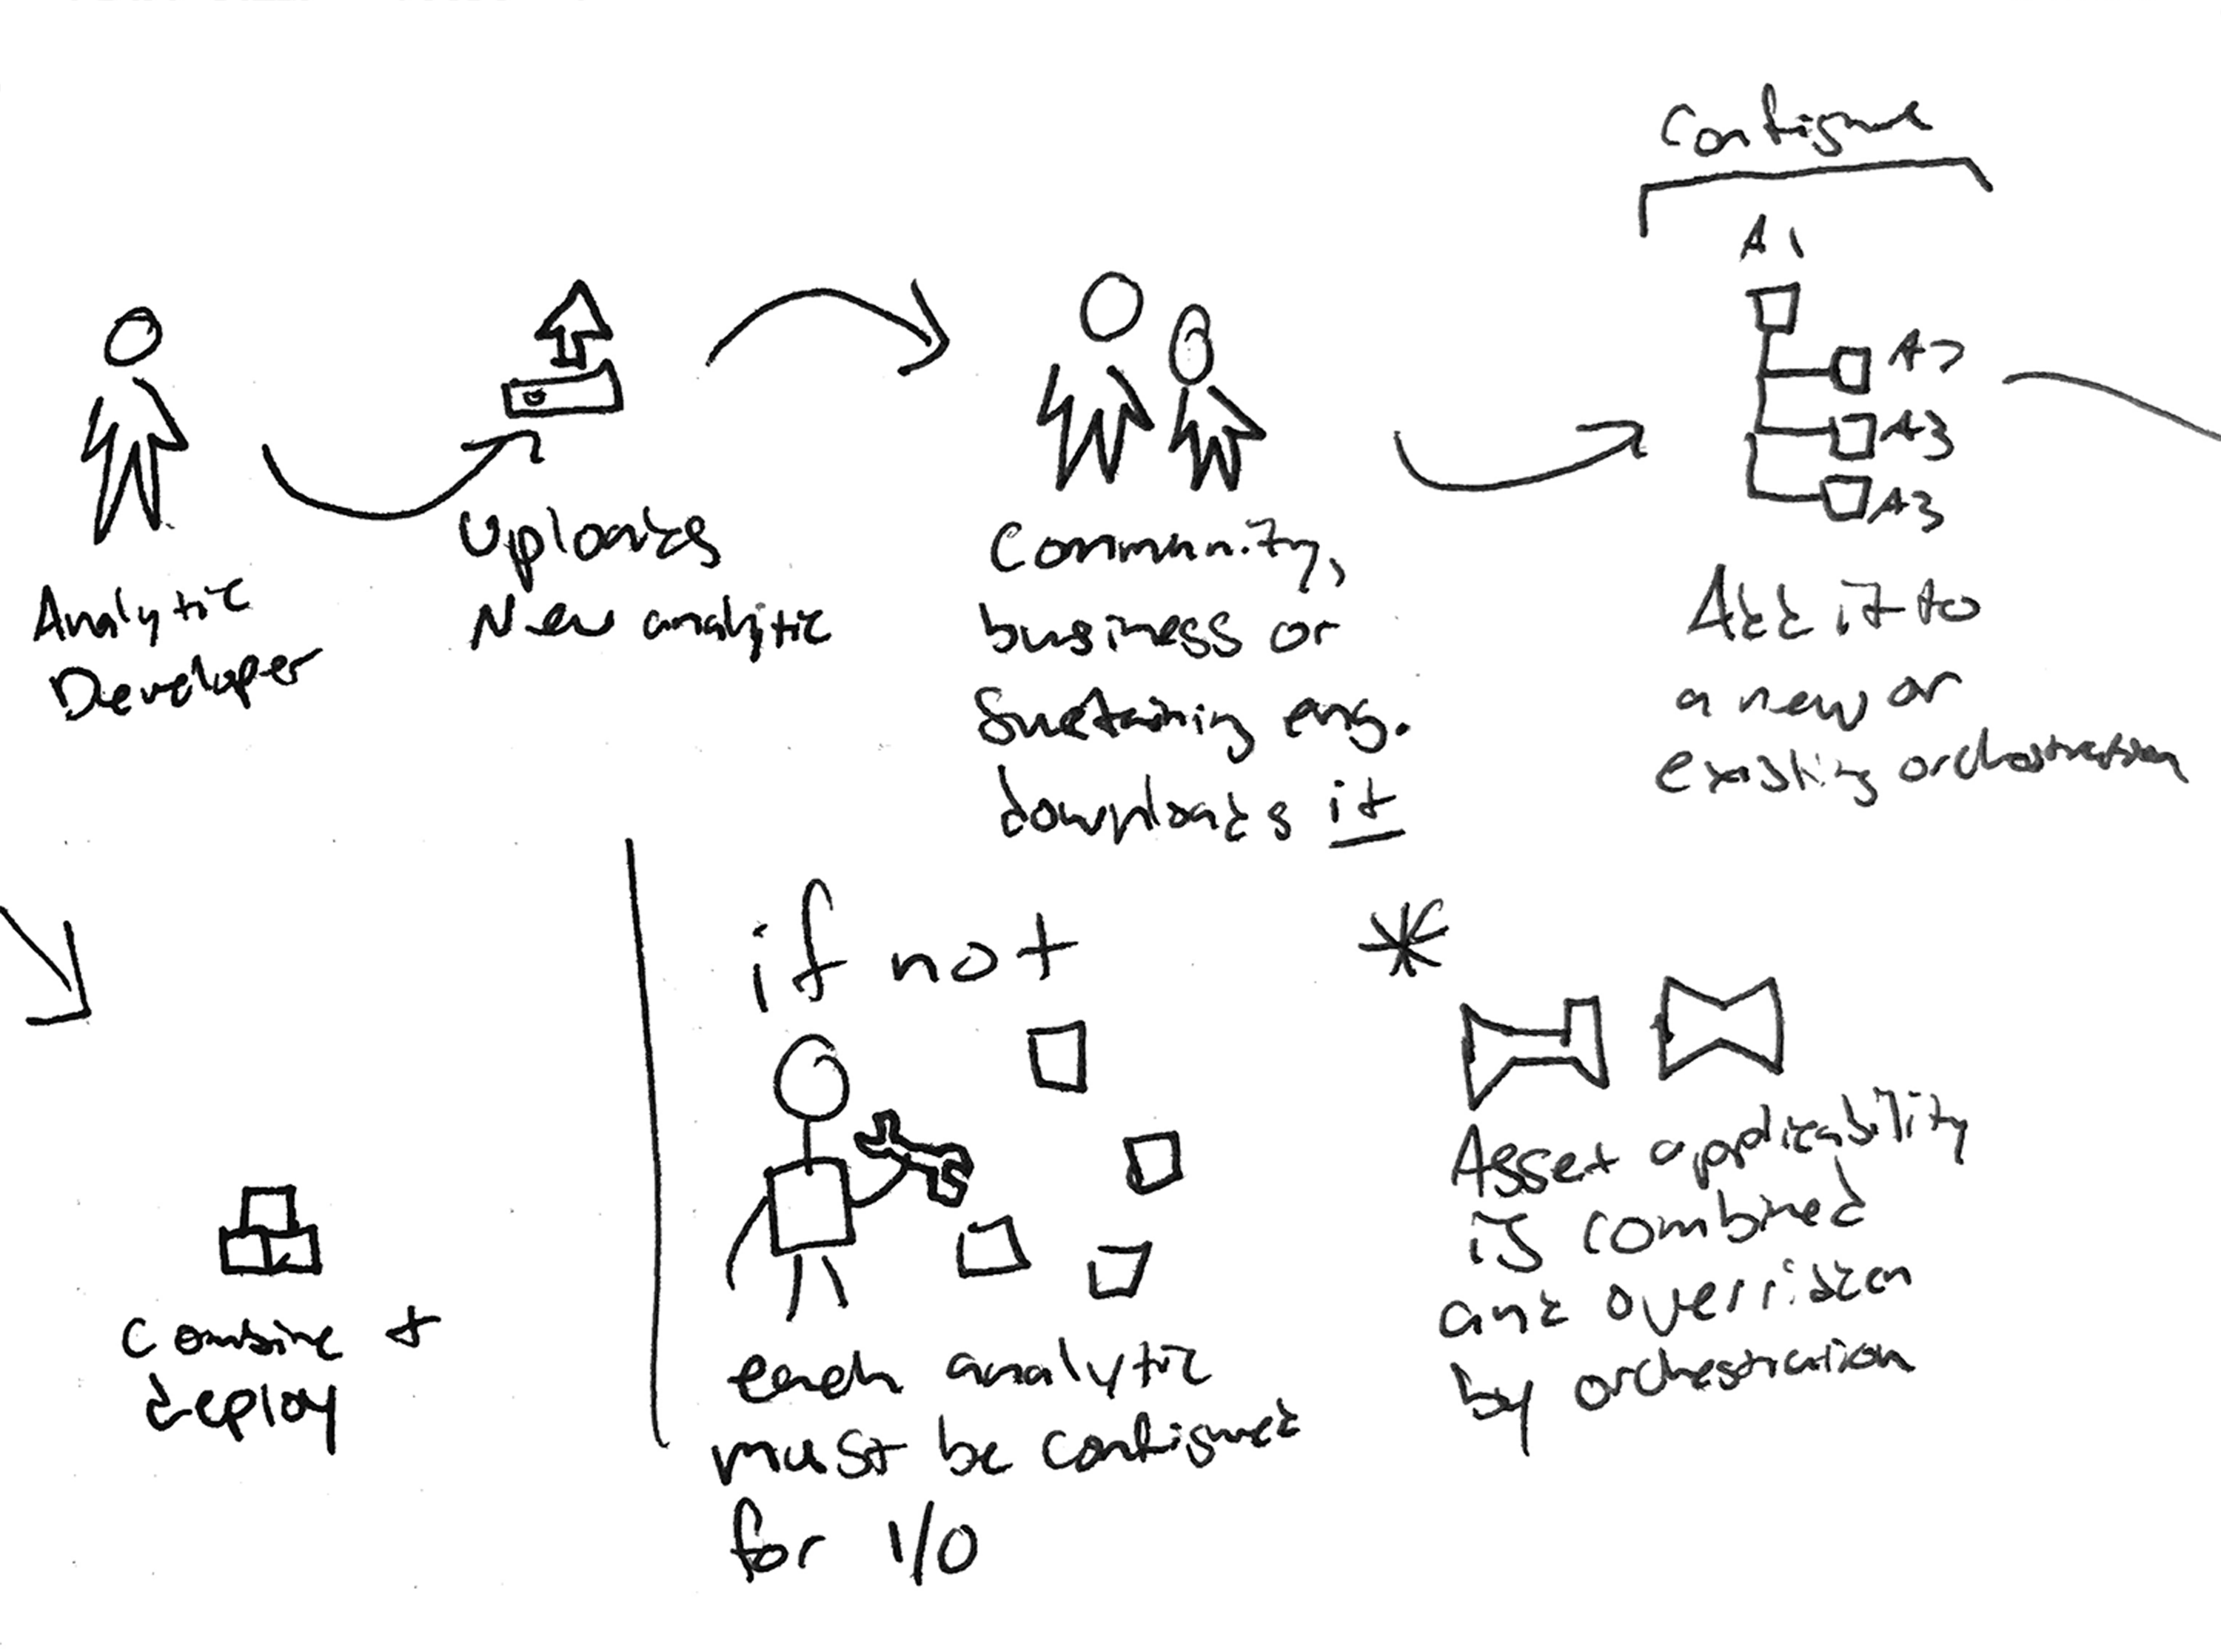 Analytic
Developer
Uploads
New analytic
Community,
business or
Sustaining eng.
downloads it
Configure
A1
A2
A3
A3
Add it to
a new or
existing orchestration
Combine +
deploy
if not
each analytic
must be configured
for I/O
*
Asset applicability
is combined
and overridden
by orchestration